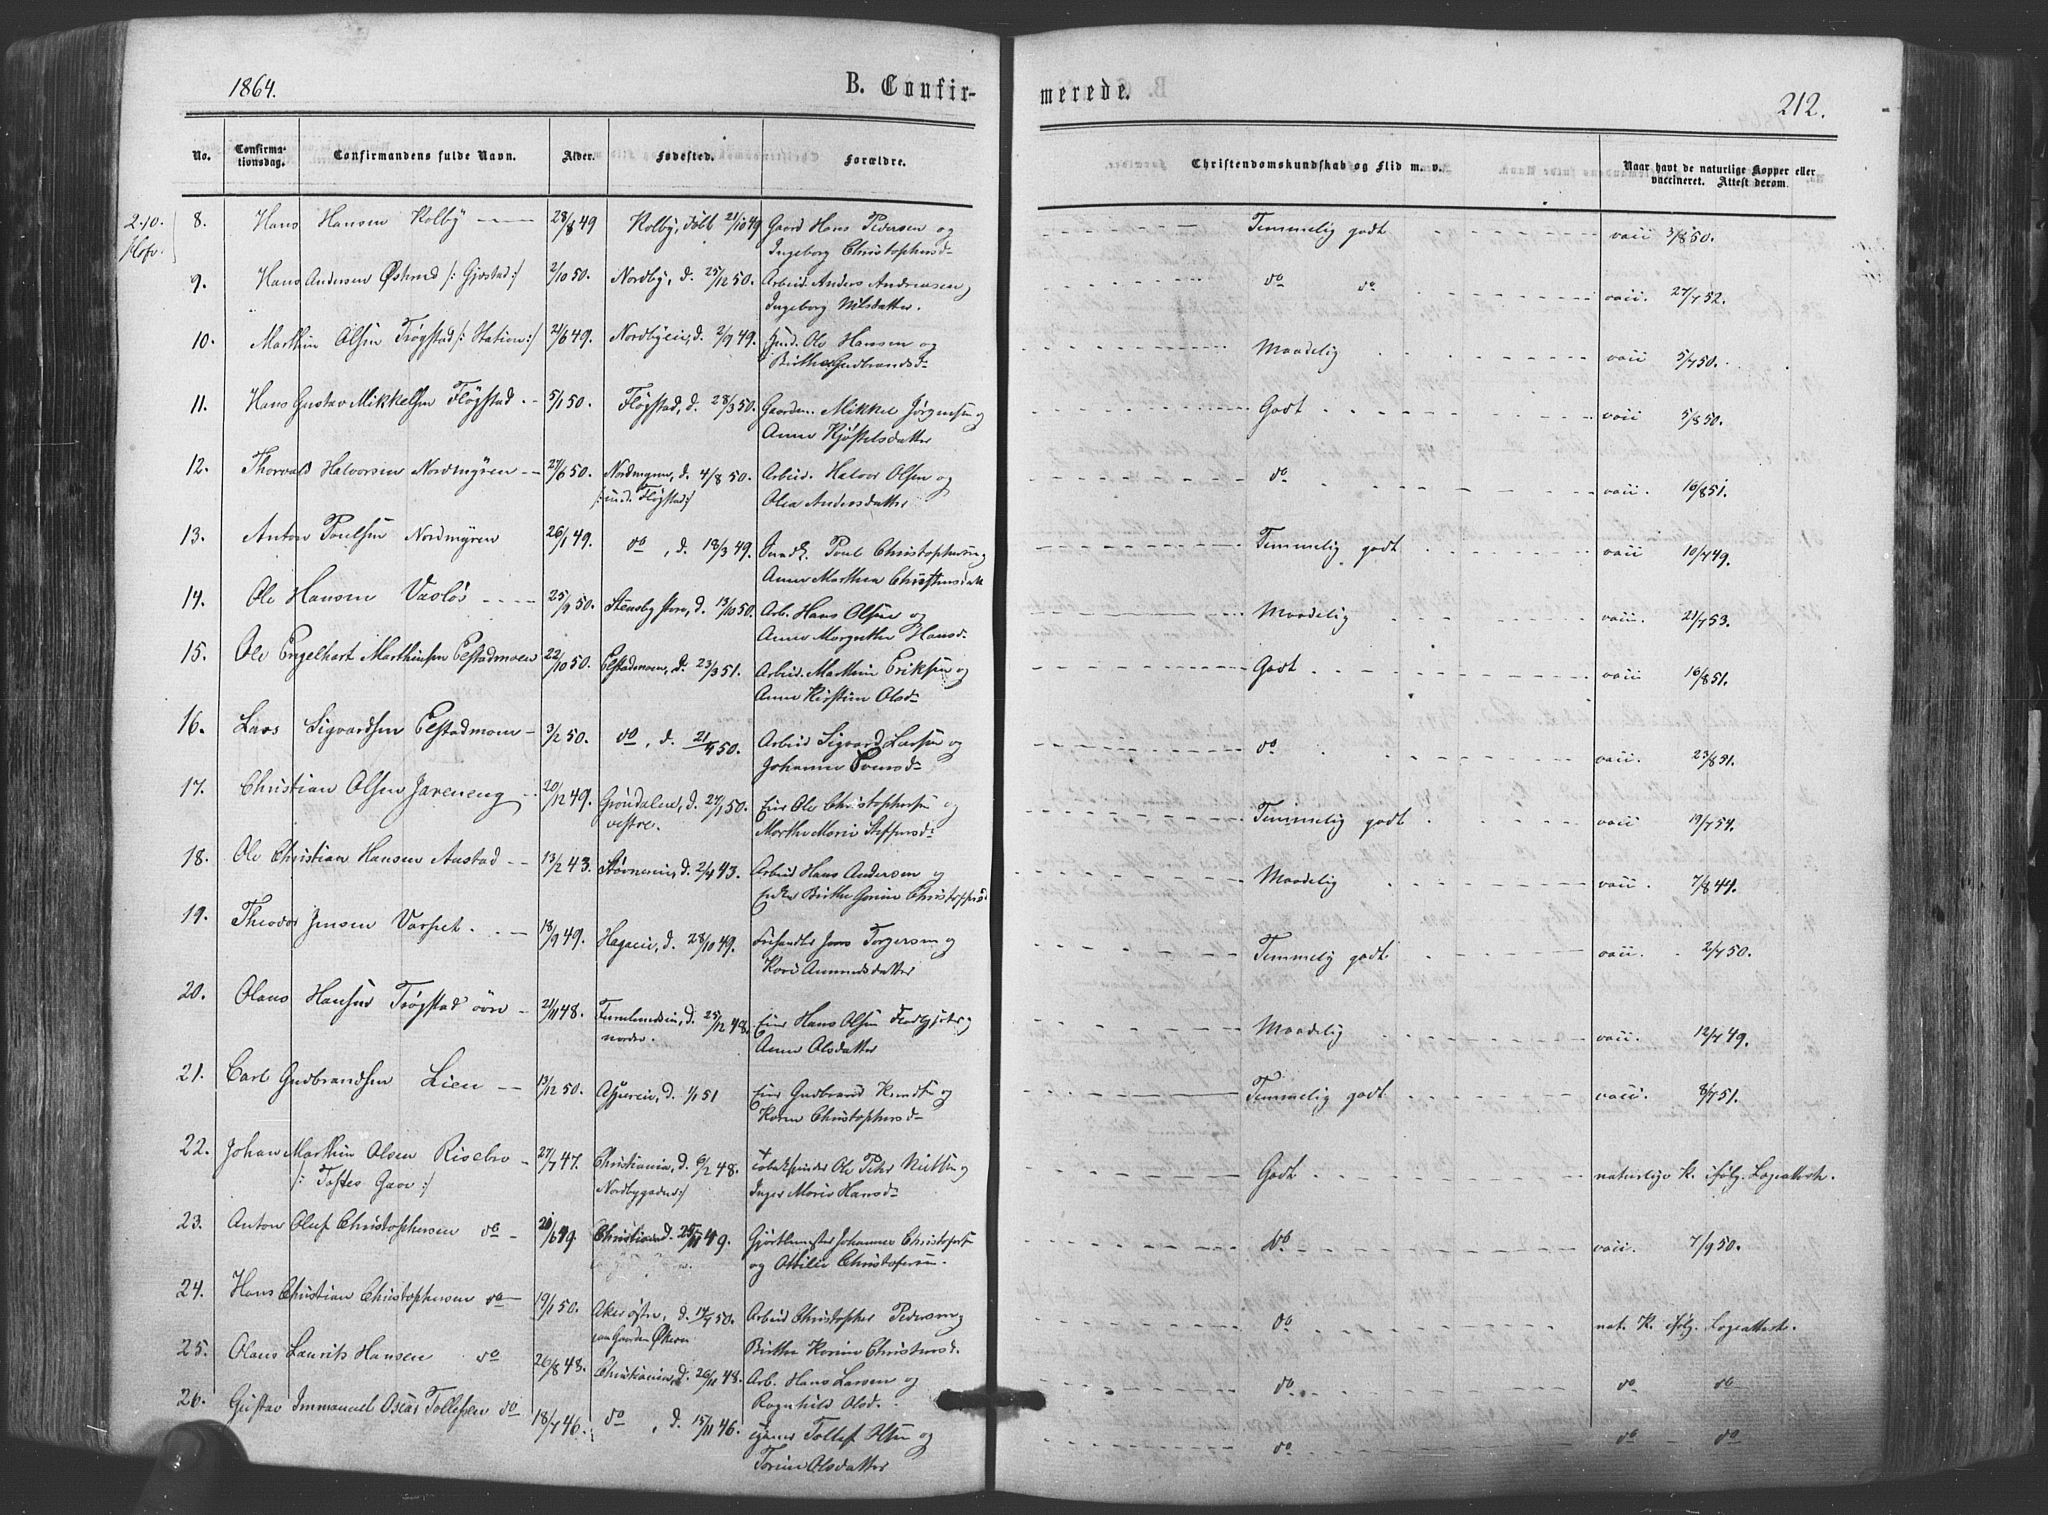 1864.
B. Confirmerede.
212.
No. Confirmationsdag. Confirmandens fulde Navn. Alder. Fødested. Forældre. Christendomskundskab og Flid m. v. Naar havt de naturlige Kopper eller vaccineret. Attest derom.
2/10.
8. Hans Hansen Kolby 28/8 49 Kolby, døbt 21/10 49 Gaard Hans Pedersen og Temmelig godt vacc 3/8 50.
Ingeborg Christophersd.
9. Hans Andersen Østrud /: Gjestad :/ 2/10 50. Nordby, d. 25/12 50. Arbeid Anders Andersen og do do vacc 27/7 52.
Ingeborg Nilsdatter.
10. Marthin Olsen Trøgstad /: Station :/ 21/6 49. Nordbyeie, d. 2/9 49. Ole Hansen og Maadelig vacc 5/7 50.
Birthe Gudbrandsd.
11. Hans Gustav Mikkelsen Fløgstad 5/1 50. Fløgstad, d. 28/3 50. Gaardm. Mikkel Jørgensen og Godt vacc 5/8 50.
Anne Kjøstelsdatter
12. Thorvald Halvorsen Nordmyren 27/6 50. Nordmyren, d. 4/8 50. Arbeid. Halvor Olsen og do vacc 16/8 51.
/: und. Fløgstad :/ Olea Andersdatter
13. Anton Poulsen Nordmyren 26/1 49. do, d. 18/3 49. Poul Christophersen og Temmelig godt vacc 10/7 49.
Anne Marthea
14. Ole Hansen Vasløs 25/9 50. Stensby store, d. 13/10 50. Arb. Hans Olsen og Maadelig vacc 21/7 53.
Anne Margrethe Hansd.
15. Ole Engelhart Marthinsen Elstadmoen 22/10 50. Elstadmoen, d. 23/3 51. Arbeid. Marthin Eriksen og Godt vacc 16/8 51.
Anne Kirstine Olsd.
16. Lars Sigvardsen Elstadmoen 3/2 50. do, d. 21/4 50. Arbeid Sigvard Larsen og do vacc. 23/8 51.
Johanne
17. Christian Olsen Jareneng 20/12 49. Grøndalen, d. 27/1 50. Ole Christophersen og Temmelig godt vacc 19/7 54.
vestre. Marthe Marie Steffensd.
18. Ole Christian Hansen Austad 13/2 43. d. 2/4 43. Arbeid Hans Andersen og Maadelig vacc. 7/8 44.
Birthe
19. Theodor Jensen Varpet 18/9 49. Hagaeie, d. 28/10 49. Jens Torgersen og Temmelig godt vacc. 2/7 50.
Kari Amundsdatter
20. Olaus Hansen Trøgstad øvre 21/11 48. d. 25/12 48. Hans Olsen og Maadelig vacc. 12/7 49.
nordre. Anne Olsdatter
21. Carl Gudbrandsen Lien 13/12 50. Asper eie, d. 1/1 51 Gudbrand Knudsen og Temmelig godt vacc. 8/7 51.
Karen Christophersd.
22. Johan Marthin Olsen Risebro 27/7 47. Christiania, d. 6/2 48. Ole Peter Nielsen og Godt naturlige K. ifølg. Lægeattest.
/: Tostes Gave :/ Nordbygaden :/ Inger Marie Hansd.
23. Anton Oluf Christophersen do 21/6 49 Christiania d. 25/11 49. Johannes Christophersen do vacc. 7/9 50.
og Otilie Christofersen.
24. Hans Christian Christophersen do 19/1 50. Aker østre, d. 14/7 50. Arbeid Christopher Pedersen og do nat. K. ifølg. Lægeattest.
paa Gaarden Økern Birthe Karine
25. Olaus Laurits Hansen do 26/8 48. Christiania, d. 26/11 48. Arb. Hans Larsen og do do do
Ragnhild Olsd.
26. Gustav Immanuel Oscar Tollefsen do 18/7 46. do, d. 15/11 46. Tollef Olsen og do do do
Torine Olsdatter